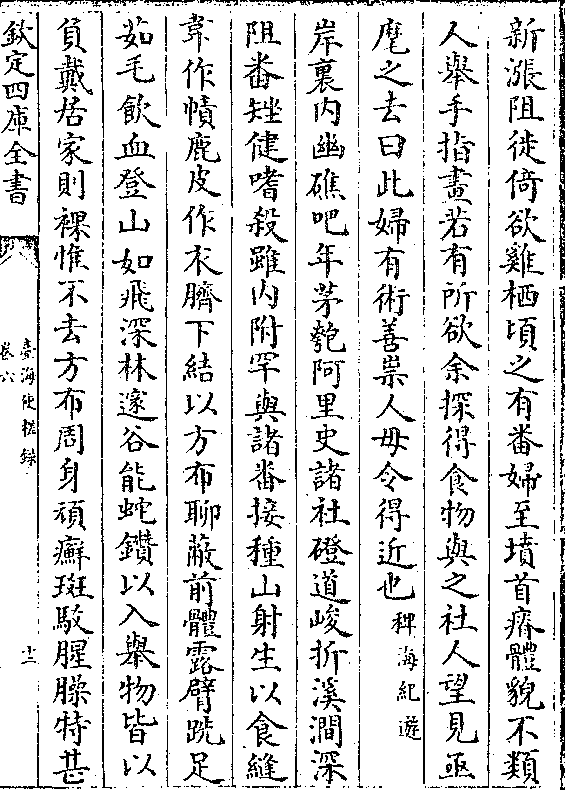 新漲阻徙倚欲雞栖頃之有番婦至墳首瘠體貌不類
人舉手指畫若有所欲余探得食物與之社人望見亟
麾之去曰此婦有術善祟人毋令得近也稗海紀遊
岸裏内幽礁吧年茅匏阿里史諸社磴道峻折溪澗深
阻番矬健嗜殺雖内附罕與諸番接種山射生以食縫
韋作幘鹿皮作衣臍下結以方布聊蔽前體露臂跣足
茹毛飲血登山如飛深林邃谷能蛇鑽以入舉物皆以
負戴居家則裸惟不去方布周身頑癬斑駁腥臊特甚
欽定四庫全書
臺海使槎録
卷六
十二